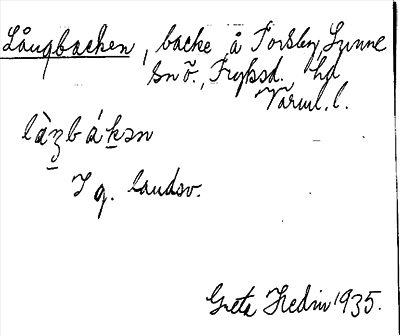 Långbacken, backe å Forsby, Sunne
Snö., Fryksd. hd
Värml. l.
làʒbákən
I g. landsv.
Greta Hedin 1935.